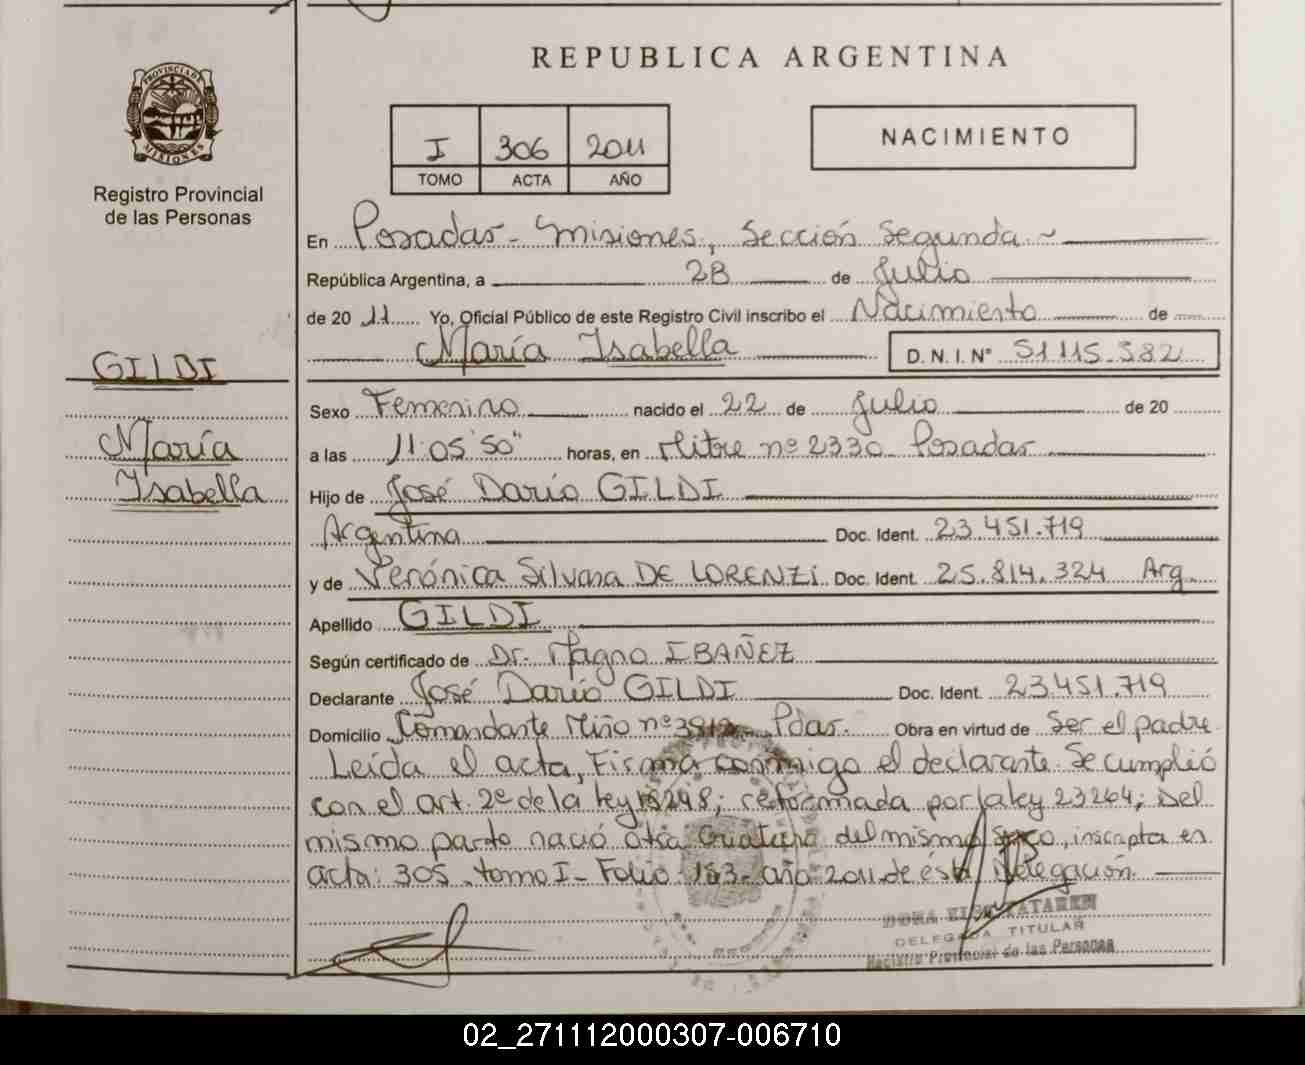 PROVINCIA DE MISIONES
Registro Provincial
de las Personas
GILDI
María
Isabella
REPUBLICA ARGENTINA
I 306 2011
TOMO ACTA AÑO
NACIMIENTO
En Posadas - Misiones, Sección Segunda
República Argentina, a 28 de Julio
de 20 11 Yo, Oficial Público de este Registro Civil inscribo el Nacimiento de
María Isabella D.N.I. Nº 51.115.382
Sexo Femenino nacido el 22 de Julio de 20
a las 11:05'50" horas, en Mitre nº 2330 Posadas
Hijo de José Darío GILDI
Argentina Doc. Ident. 23.451.719
y de Verónica Silvana DE LORENZI Doc. Ident. 25.814.324 Arg.
Apellido GILDI
Según certificado de Dr. Magno IBAÑEZ
Declarante José Darío GILDI Doc. Ident. 23.451.719
Domicilio Comandante Miño nº Pdas. Obra en virtud de Ser el padre
Leída el acta, Firma conmigo el declarante. Se cumplió
con el art. 2º de la ley 18248; reformada por la ley 23264; Del
mismo parto nació otra criatura del mismo sexo, inscripta en
acta: 305 tomo I - Folio 153 - año 2011 de ésta Delegación.
DELEGADA TITULAR
Registro Provincial de las Personas
02_271112000307-006710